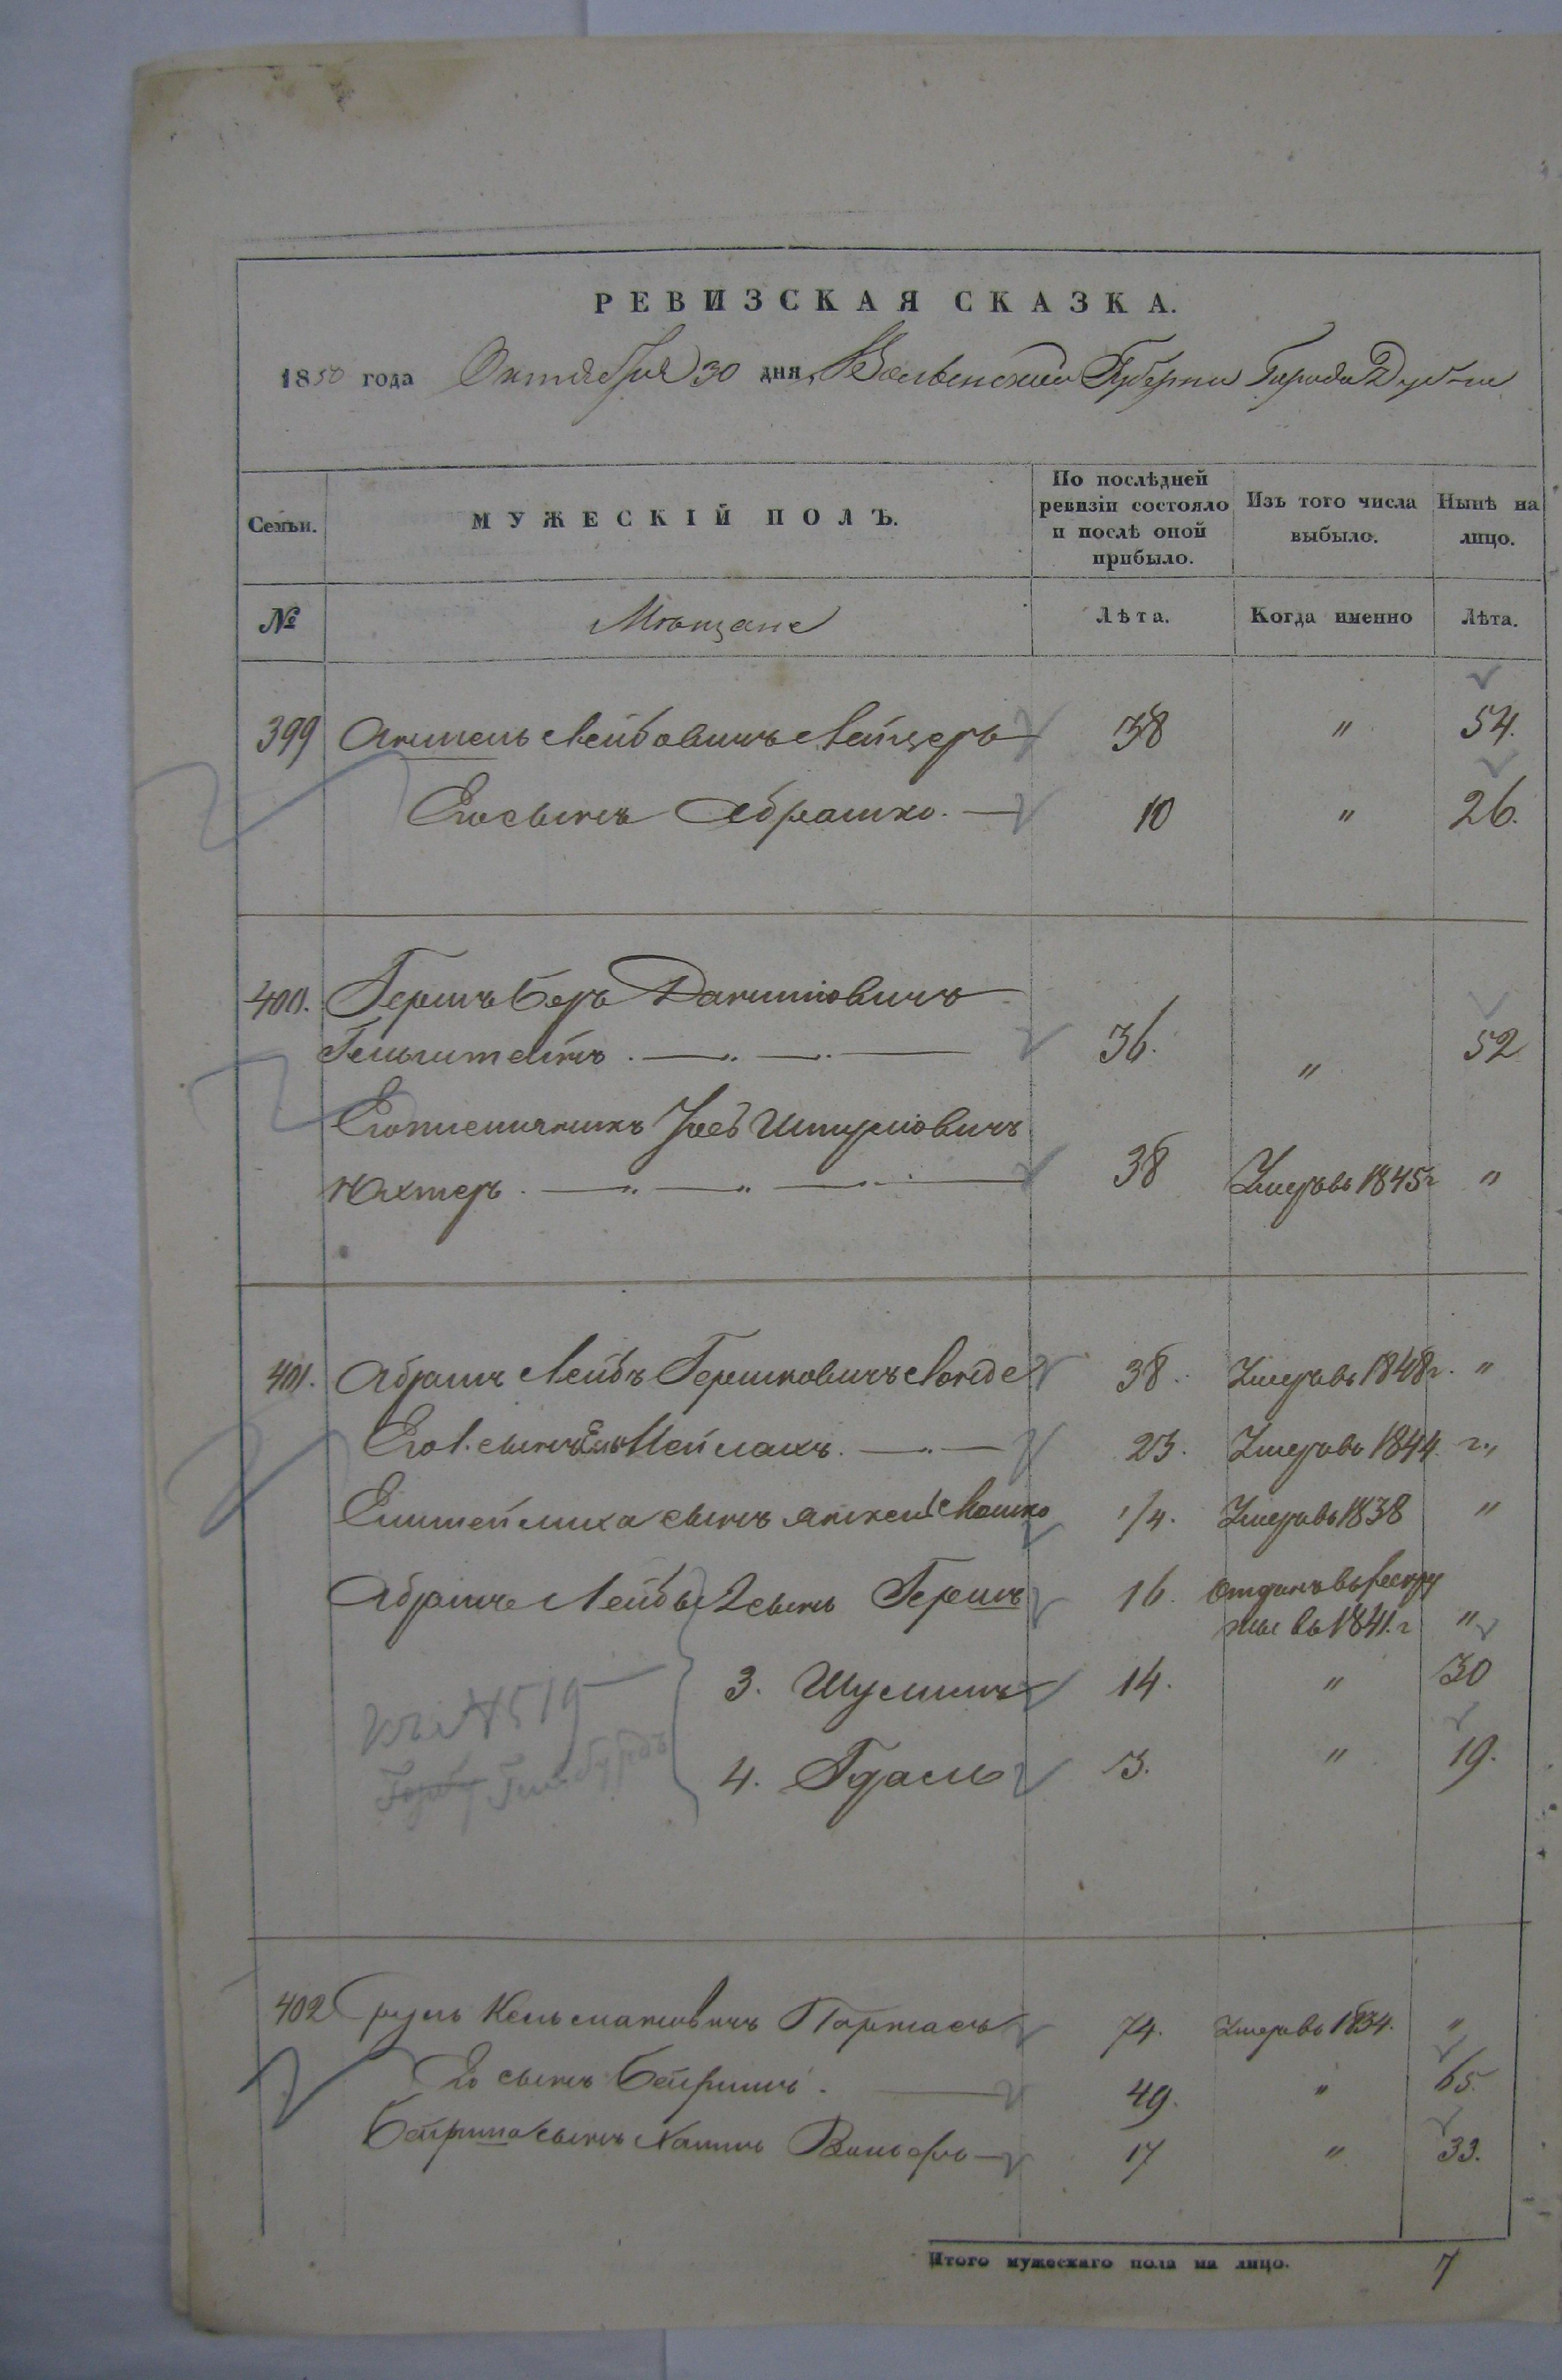 РЕВИЗСКАЯ СКАЗКА.
1850 года Октября 30 дня Волынской Губерніи Города Дубно
Семьи. МУЖЕСКІЙ ПОЛЪ. По послѣдней ревизіи состояло и послѣ оной прибыло. Изъ того числа выбыло. Нынѣ на лицо.
№ Мѣщане Лѣта. Когда именно Лѣта.
399 Лейбовичъ 38 " 54.
Его сынъ Абрашко. 10 " 26.
400. Гершъ Беръ
Гольштейнъ. 36. " 52
Его племянникъ
Юхтеръ. 38 Умеръ въ 1845 г "
401. Абрамъ Лейбъ Гершковичъ 38. Умеръ въ 1848 г. "
Его 1. сынъ 23. Умеръ въ 1844 г. "
сынъ Мошко 1/4. Умеръ въ 1838 "
Абрама Лейбы 2 сынъ Гершъ 16. Отданъ въ рекру
ты въ 1841. г "
3. Шулимъ 14. " 30
4. Гдаль 3. " 19.
№ 519
402 Сруль Кельмановичъ Портасъ 74. Умеръ въ 1834. "
Его сынъ Бейришъ. 49. " 65.
Бейриша сынъ Хаимъ Вольфъ 17 " 33.
Итого мужескаго пола на лицо. 7